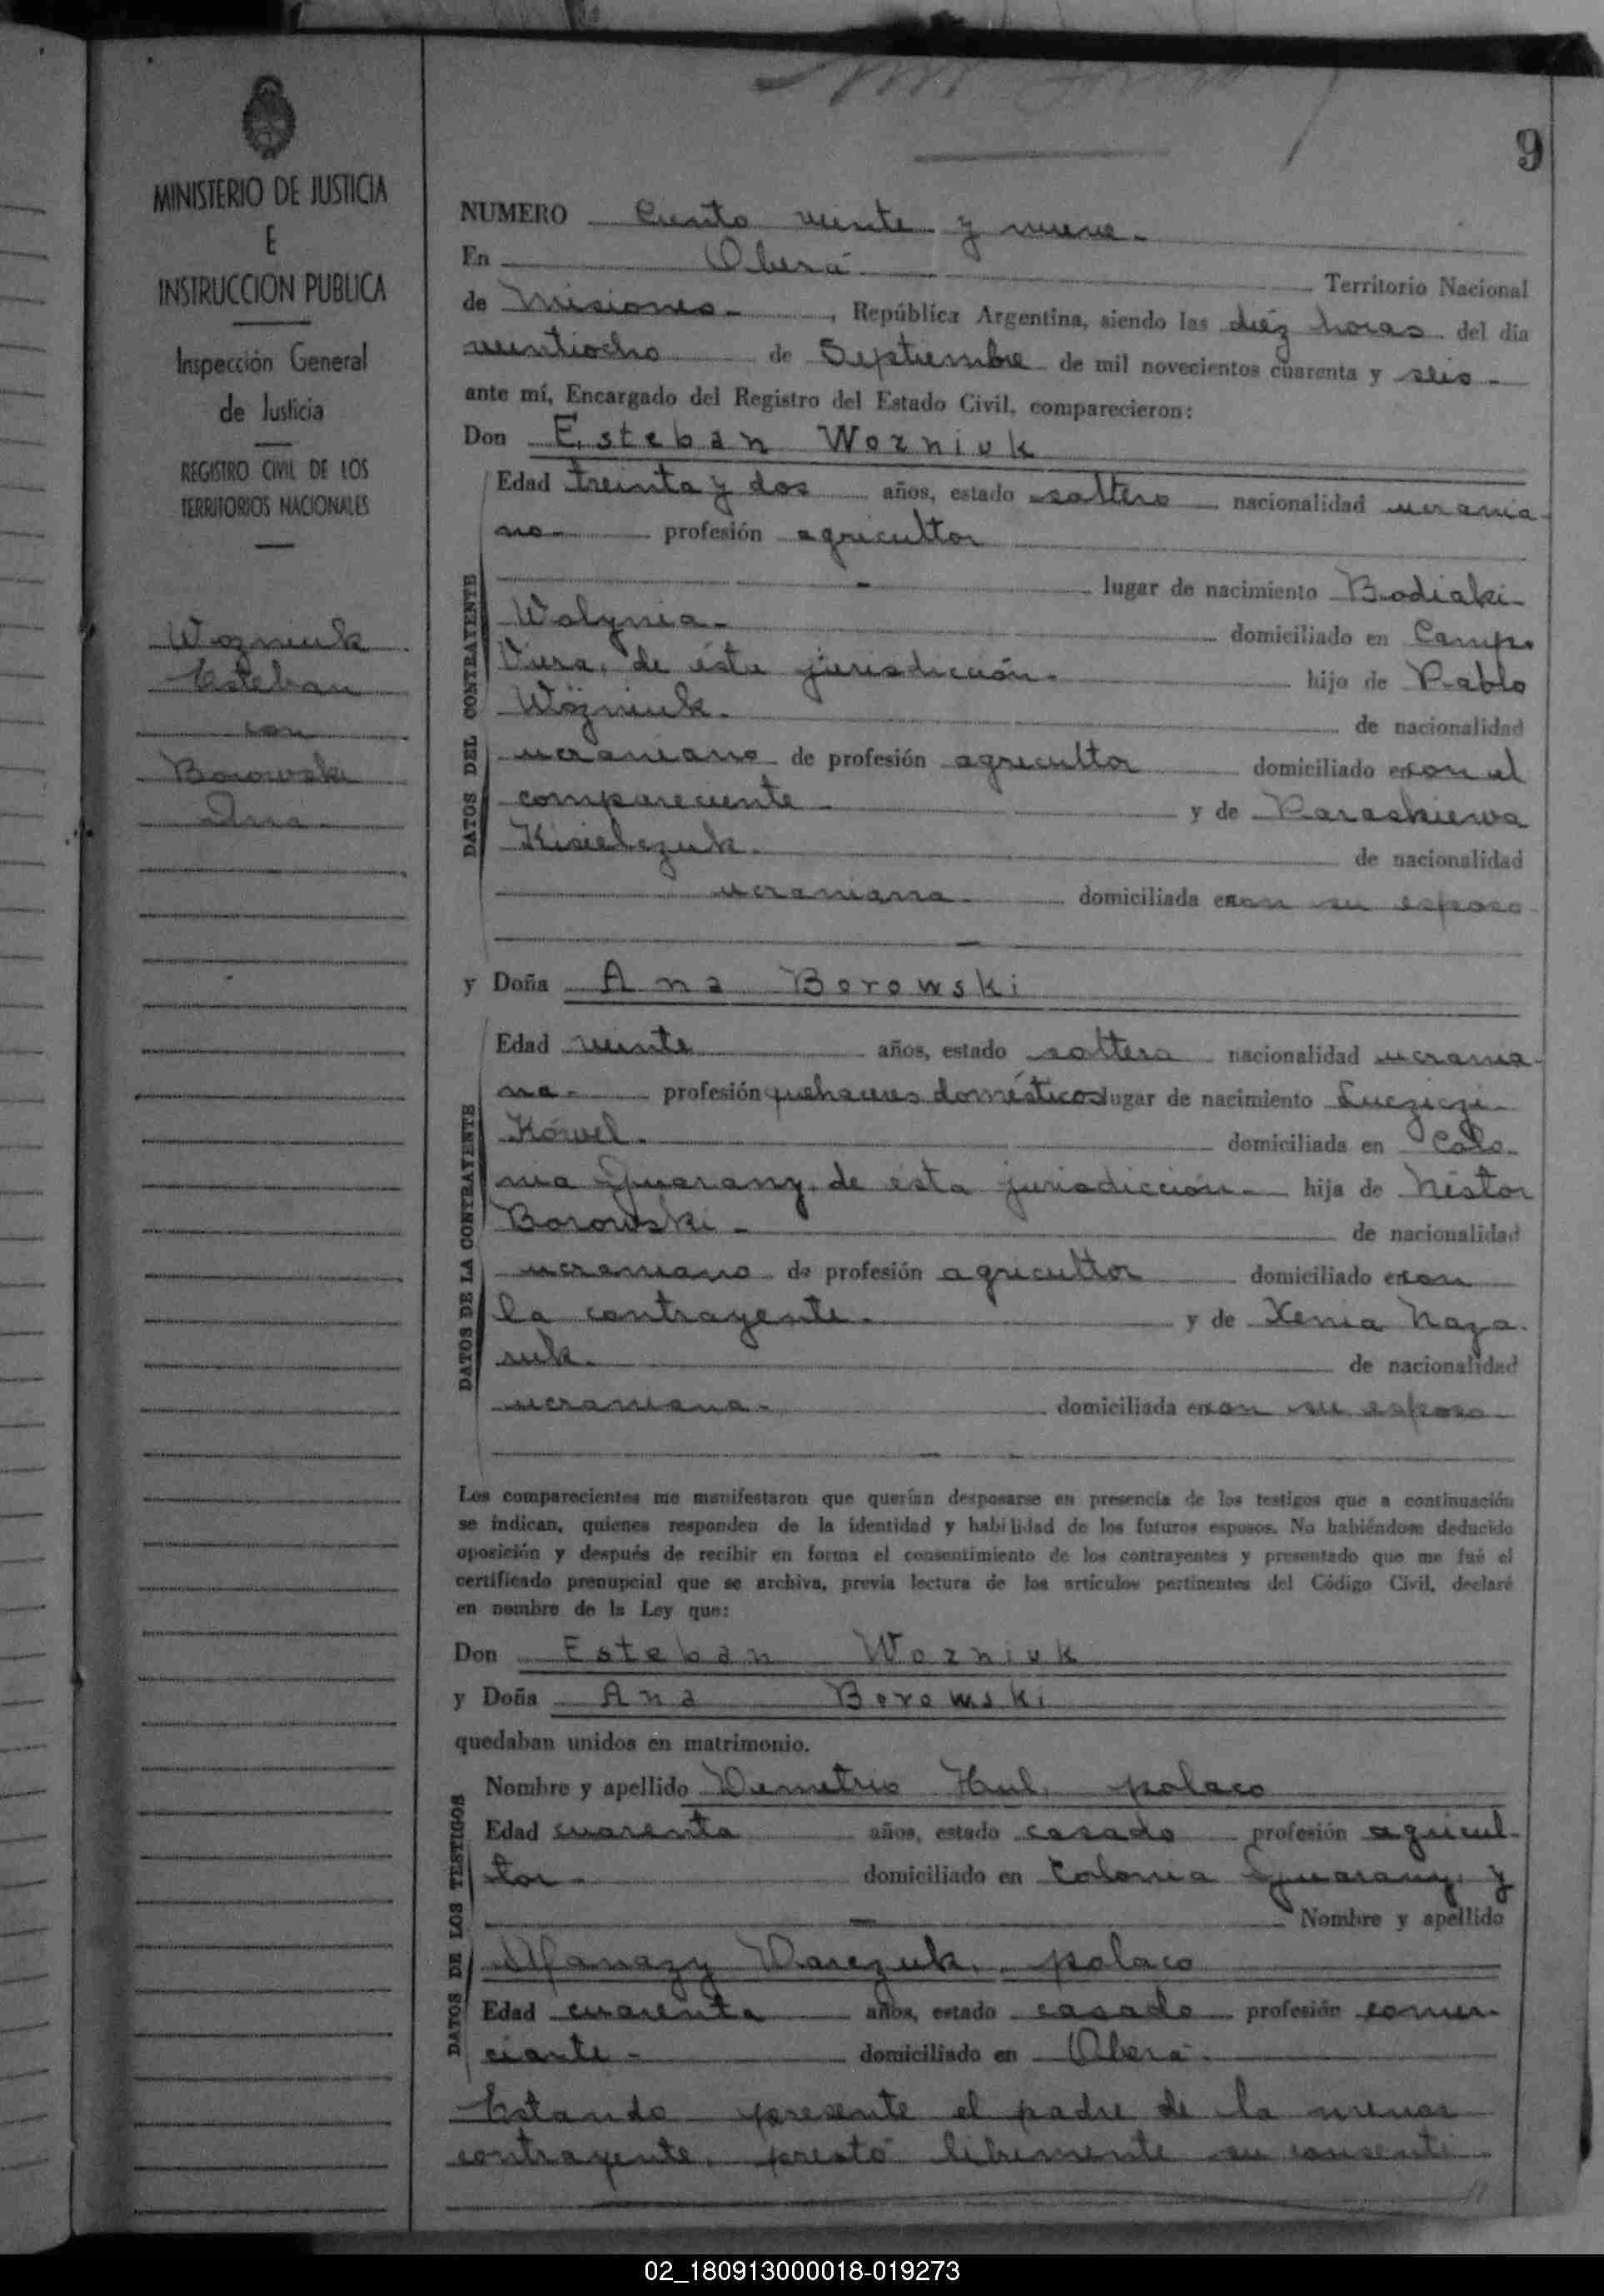 9
MINISTERIO DE JUSTICIA
E
INSTRUCCION PUBLICA
Inspección General
de Justicia
REGISTRO CIVIL DE LOS
TERRITORIOS NACIONALES
Wozniuk
Esteban
con
Borowski
Ana
NUMERO Ciento veinte y nueve.
En Oberá Territorio Nacional
de Misiones- , República Argentina, siendo las diéz horas del día
veintiocho de Septiembre de mil novecientos cuarenta y seis-
ante mí, Encargado del Registro del Estado Civil, comparecieron:
Don Esteban Wozniuk
Edad treinta y dos años, estado soltero nacionalidad ucrania-
no- profesión agricultor
lugar de nacimiento Bodiaki-
Wolynia- domiciliado en Campo
Viera, de ésta jurisdicción- hijo de Pablo
Wozniuk. de nacionalidad
ucraniano de profesión agricultor domiciliado en con el
compareciente- y de Paraskiewa
Kisielczuk. de nacionalidad
ucraniana- domiciliada en con su esposo
y Doña Ana Borowski
Edad veinte años, estado soltera nacionalidad ucrania-
na- profesión quehaceres domésticos lugar de nacimiento
Kówel- domiciliada en Colo-
nia Guarany, de ésta jurisdicción- hija de Néstor
Borowski- de nacionalidad
ucraniano de profesión agricultor domiciliado en con
la contrayente- y de Xenia Naza-
ruk. de nacionalidad
ucraniana- domiciliada en con su esposo-
Los comparecientes me manifestaron que querían desposarse en presencia de los testigos que a continuación
se indican, quienes responden de la identidad y habilidad de los futuros esposos. No habiéndose deducido
oposición y después de recibir en forma el consentimiento de los contrayentes y presentado que me fué el
certificado prenupcial que se archiva, previa lectura de los artículos pertinentes del Código Civil, declaré
en nombre de la Ley que:
Don Esteban Wozniuk
y Doña Ana Borowski
quedaban unidos en matrimonio.
Nombre y apellido Demetrio Hul, polaco
Edad cuarenta años, estado casado profesión agricul-
tor- domiciliado en Colonia Guarany, y
Nombre y apellido
Afanazy polaco
Edad cuarenta años, estado casado profesión comer-
ciante- domiciliado en Oberá-
Estando presente el padre de la menor
contrayente, prestó libremente su consenti
DATOS DEL CONTRAYENTE
DATOS DE LA CONTRAYENTE
DATOS DE LOS TESTIGOS
02_180913000018-019273